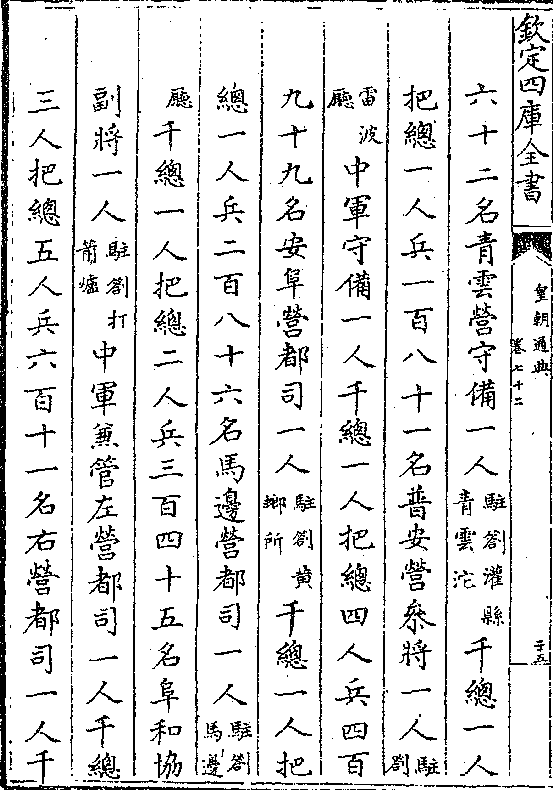 欽定四庫全書
皇朝通典
卷七十二
六十二名青雲營守備一人駐劄灌縣青雲沱千總一人
把總一人兵一百八十一名普安營叅將一人駐劄
雷波廳中軍守備一人千總一人把總四人兵四百
九十九名安阜營都司一人駐劄黄鄉所千總一人把
總一人兵二百八十六名馬邊營都司一人駐劄馬邊
廳千總一人把總二人兵三百四十五名阜和協
副將一人駐劄打箭爐中軍兼管左營都司一人千總
三人把總五人兵六百十一名右營都司一人千